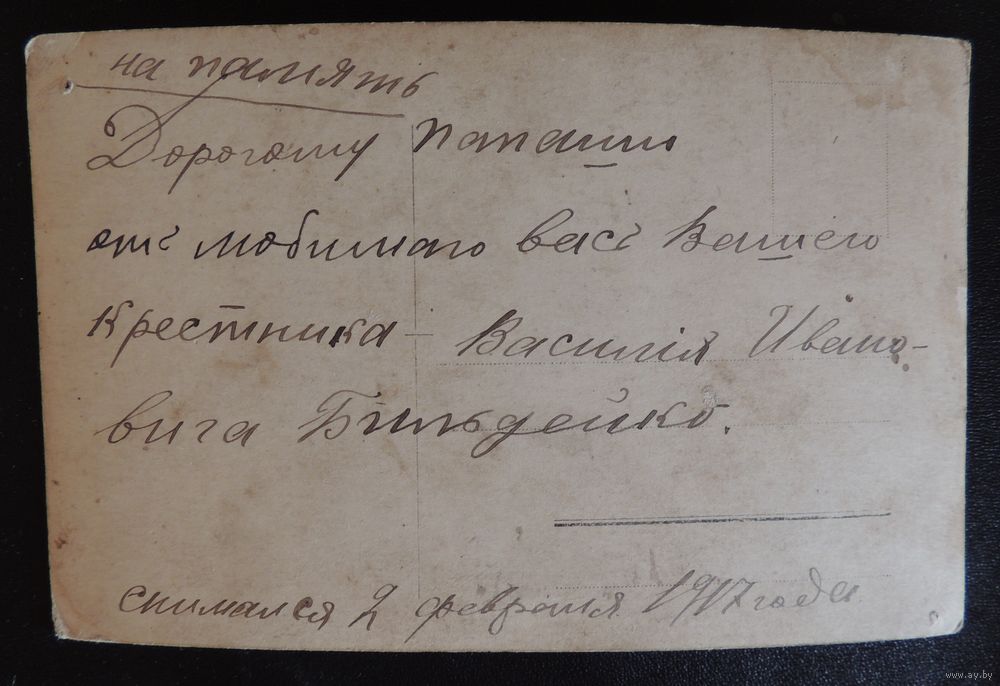 на память
Дорогому папаши
отъ любимаго васъ Вашего
крестника – Василія Ивано-
вича Бильдейко.
снимался 2 февраля 1917 года
www.ay.by